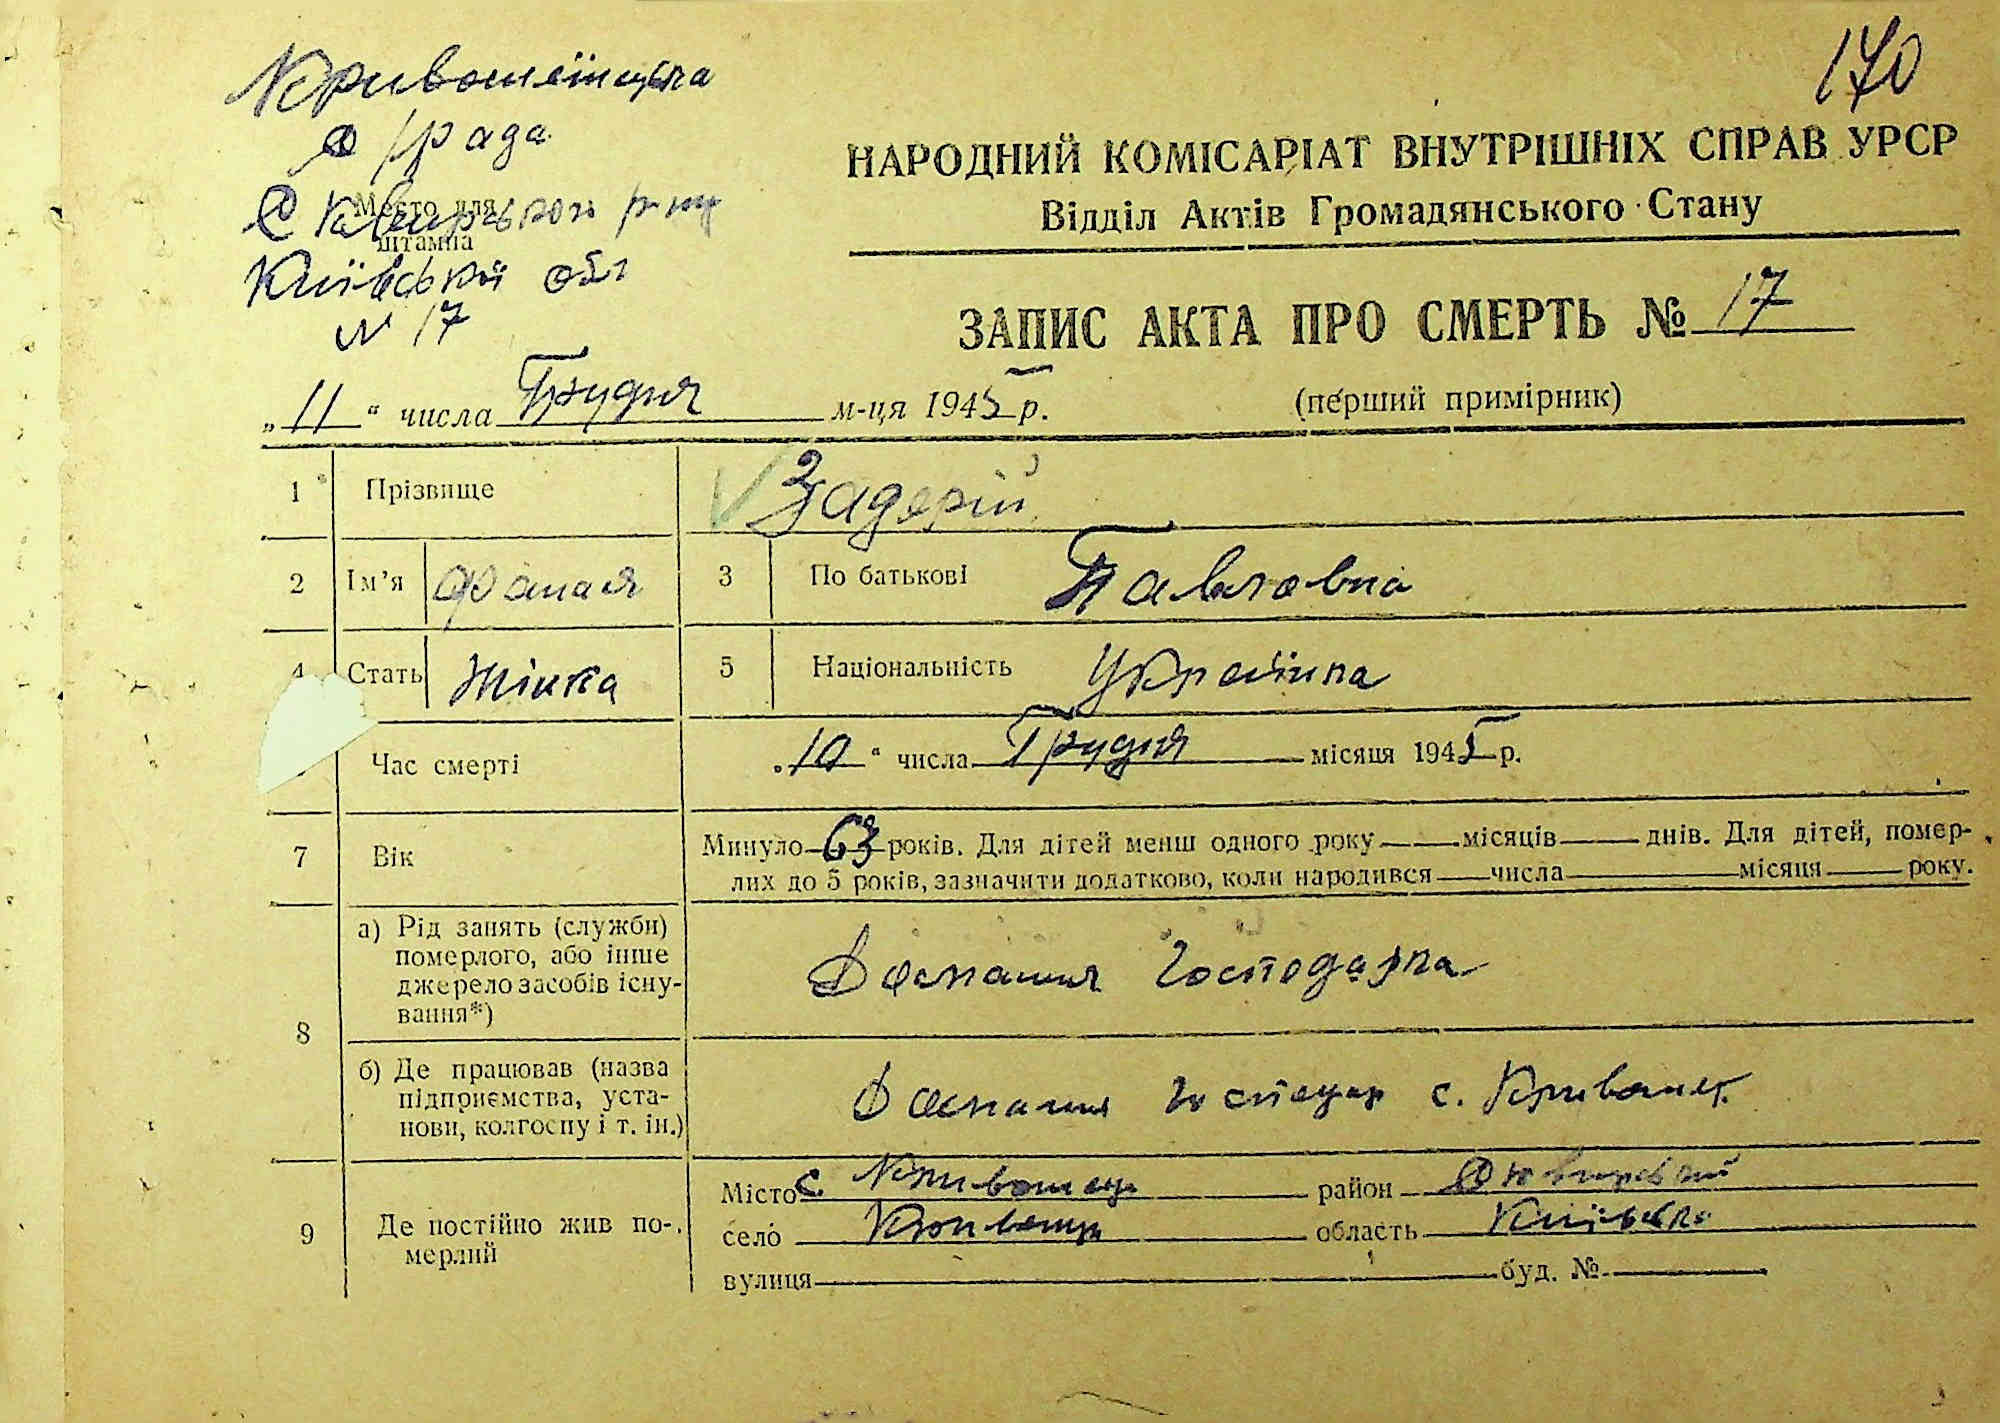 170
Кривошеїнська
с/рада
Место для
штампа
Сквирського р-ну
Київської обл
N 17
НАРОДНИЙ КОМІСАРІАТ ВНУТРІШНІХ СПРАВ УРСР
Відділ Актів Громадянського Стану
ЗАПИС АКТА ПРО СМЕРТЬ № 17
(перший примірник)
„11“ числа Грудня м-ця 1945 р.
1 Прізвище Задерій
2 Ім’я 3 По батькові Павловна
4 Стать Жінка 5 Національність Українка
Час смерті „10“ числа Грудня місяця 1945 р.
7 Вік Минуло 63 років. Для дітей менш одного року — місяців — днів. Для дітей, помер-
лих до 5 років, зазначити додатково, коли народився — числа — місяця — року.
8 а) Рід занять (служби)
померлого, або інше
джерело засобів існу-
вання*)
Домашня Господарка
б) Де працював (назва
підприємства, уста-
нови, колгоспу і т. ін.)
Домашня господар с. Кривошеї.
9 Де постійно жив по-
мерлий
Місто с. Кривошеїнці район Сквирський
село Кривошеїнці область Київська
вулиця — буд. № —